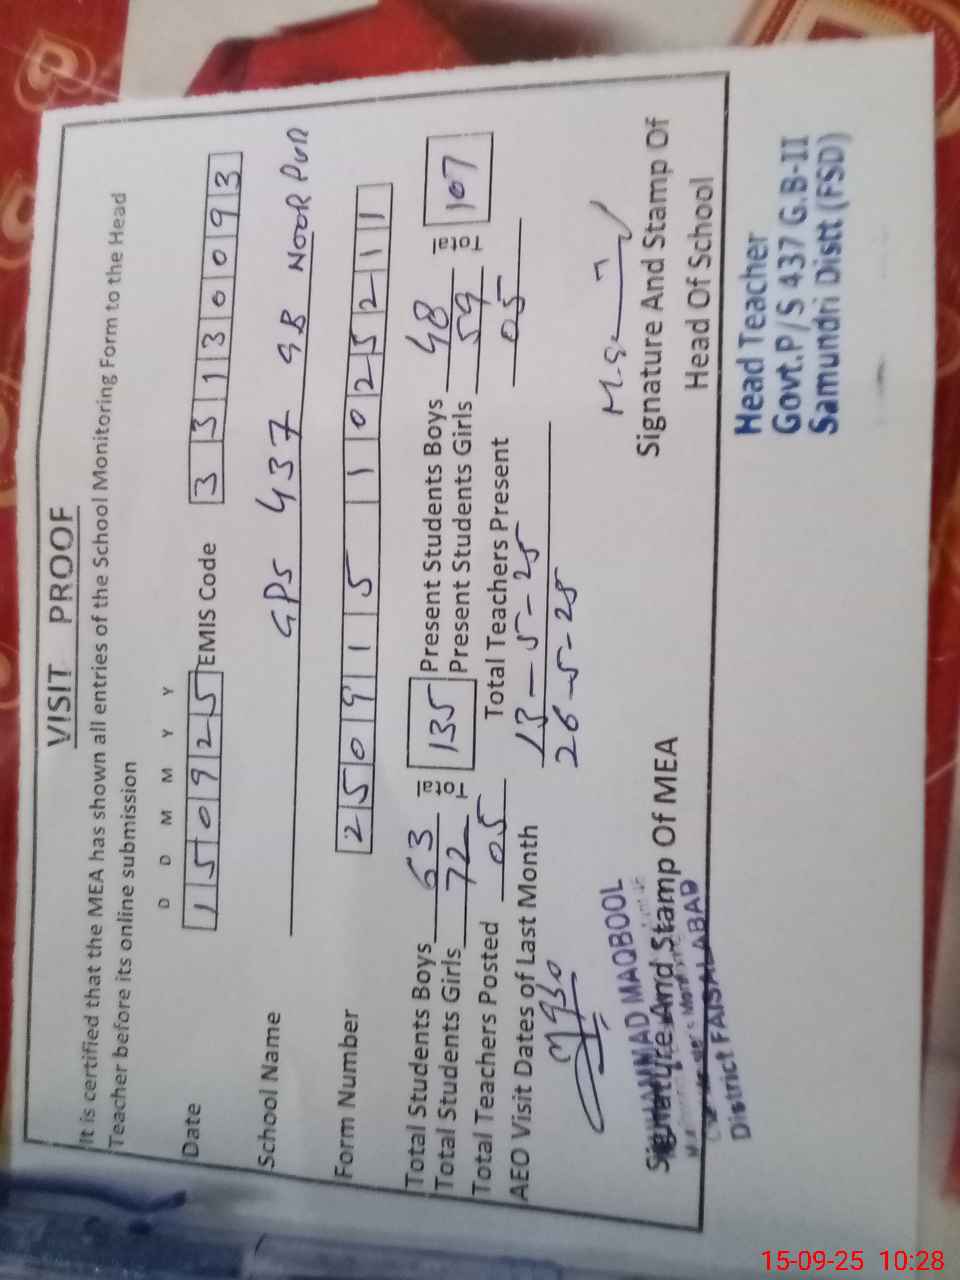 VISIT PROOF
It is certified that the MEA has shown all entries of the School Monitoring Form to the Head
Teacher before its online submission
D D M M Y Y
Date 150925 EMIS Code 33130093
School Name GPS 437 GB NOOR PUR
Form Number 2509151025211
Total Students Boys 63 Total 135 Present Students Boys 48 Total 107
Total Students Girls 72 Present Students Girls 59
Total Teachers Posted 05 Total Teachers Present 05
AEO Visit Dates of Last Month 13-5-25
26-5-25
Signature And Stamp Of MEA
MUHAMMAD MAQBOOL
District FAISALABAD
Signature And Stamp Of
Head Of School
Head Teacher
Govt.P/S 437 G.B-II
Samundri Distt (FSD)
15-09-25 10:28